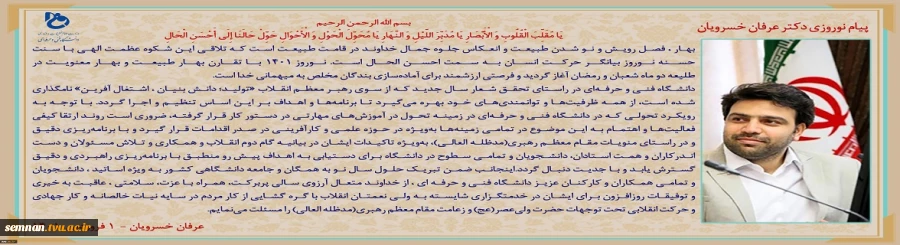 پیام نوروزی دکتر عرفان خسرویان
بسم الله الرحمن الرحیم
یَا مُقَلِّبَ الْقُلُوبِ وَ الْأَبْصَارِ یَا مُدَبِّرَ اللَّیْلِ وَ النَّهَارِ یَا مُحَوِّلَ الْحَوْلِ وَ الْأَحْوَالِ حَوِّلْ حَالَنَا إِلَی أَحْسَنِ الْحَالِ
بهار، فصل رویش و نو شدن طبیعت و انعکاس جلوه جمال خداوند در قامت طبیعت است که تلاقی این شکوه عظمت الهی با سنت
حسنه نوروز بیانگر حرکت انسان به سمت احسن الحال است. نوروز ۱۴۰۱ با تقارن بهار طبیعت و بهار معنویت در
طلیعه دو ماه شعبان و رمضان آغاز گردید و فرصتی ارزشمند برای آماده‌سازی بندگان مخلص به میهمانی خدا است.
دانشگاه فنی و حرفه‌ای در راستای تحقق شعار سال جدید که از سوی رهبر معظم انقلاب «تولید؛ دانش بنیان، اشتغال آفرین» نامگذاری
شده است، از همه ظرفیت‌ها و توانمندی‌های خود بهره می‌گیرد تا برنامه‌ها و اهداف بر این اساس تنظیم و اجرا گردد. با توجه به
رویکرد تحولی که در دانشگاه فنی و حرفه‌ای در زمینه تحول در آموزش‌های مهارتی در دستور کار قرار گرفته، ضروری است روند ارتقا کیفی
فعالیت‌ها و اهتمام به این موضوع در تمامی زمینه‌ها به‌ویژه در حوزه علمی و کارآفرینی در صدر اقدامات قرار گیرد و با برنامه‌ریزی دقیق
و در راستای منویات مقام معظم رهبری(مدظله العالی)، به‌ویژه تاکیدات ایشان در بیانیه گام دوم انقلاب و همکاری و تلاش مسئولان و دست
اندرکاران و همت استادان، دانشجویان و تمامی سطوح در دانشگاه برای دستیابی به اهداف پیش رو منطبق با برنامه‌ریزی راهبردی و دقیق
گسترش یابد و با جدیت دنبال گردد.اینجانب ضمن تبریک حلول سال نو به همگان و جامعه دانشگاهی کشور به ویژه اساتید ، دانشجویان
و تمامی همکاران و کارکنان عزیز دانشگاه فنی و حرفه ای ، از خداوند متعال آرزوی سالی پربرکت، همراه با عزت، سلامتی ، عاقبت به خیری
و توفیقات روزافزون برای ایشان در خدمتگزاری شایسته به ولی نعمتان انقلاب با گره گشایی از کار مردم در سایه نیات خالصانه و کار جهادی
و حرکت انقلابی تحت توجهات حضرت ولی‌عصر(عج) و زعامت مقام معظم رهبری(مدظله العالی) را مسئلت می‌نمایم.
عرفان خسرویان - ۱
semnan.tvu.ac.ir